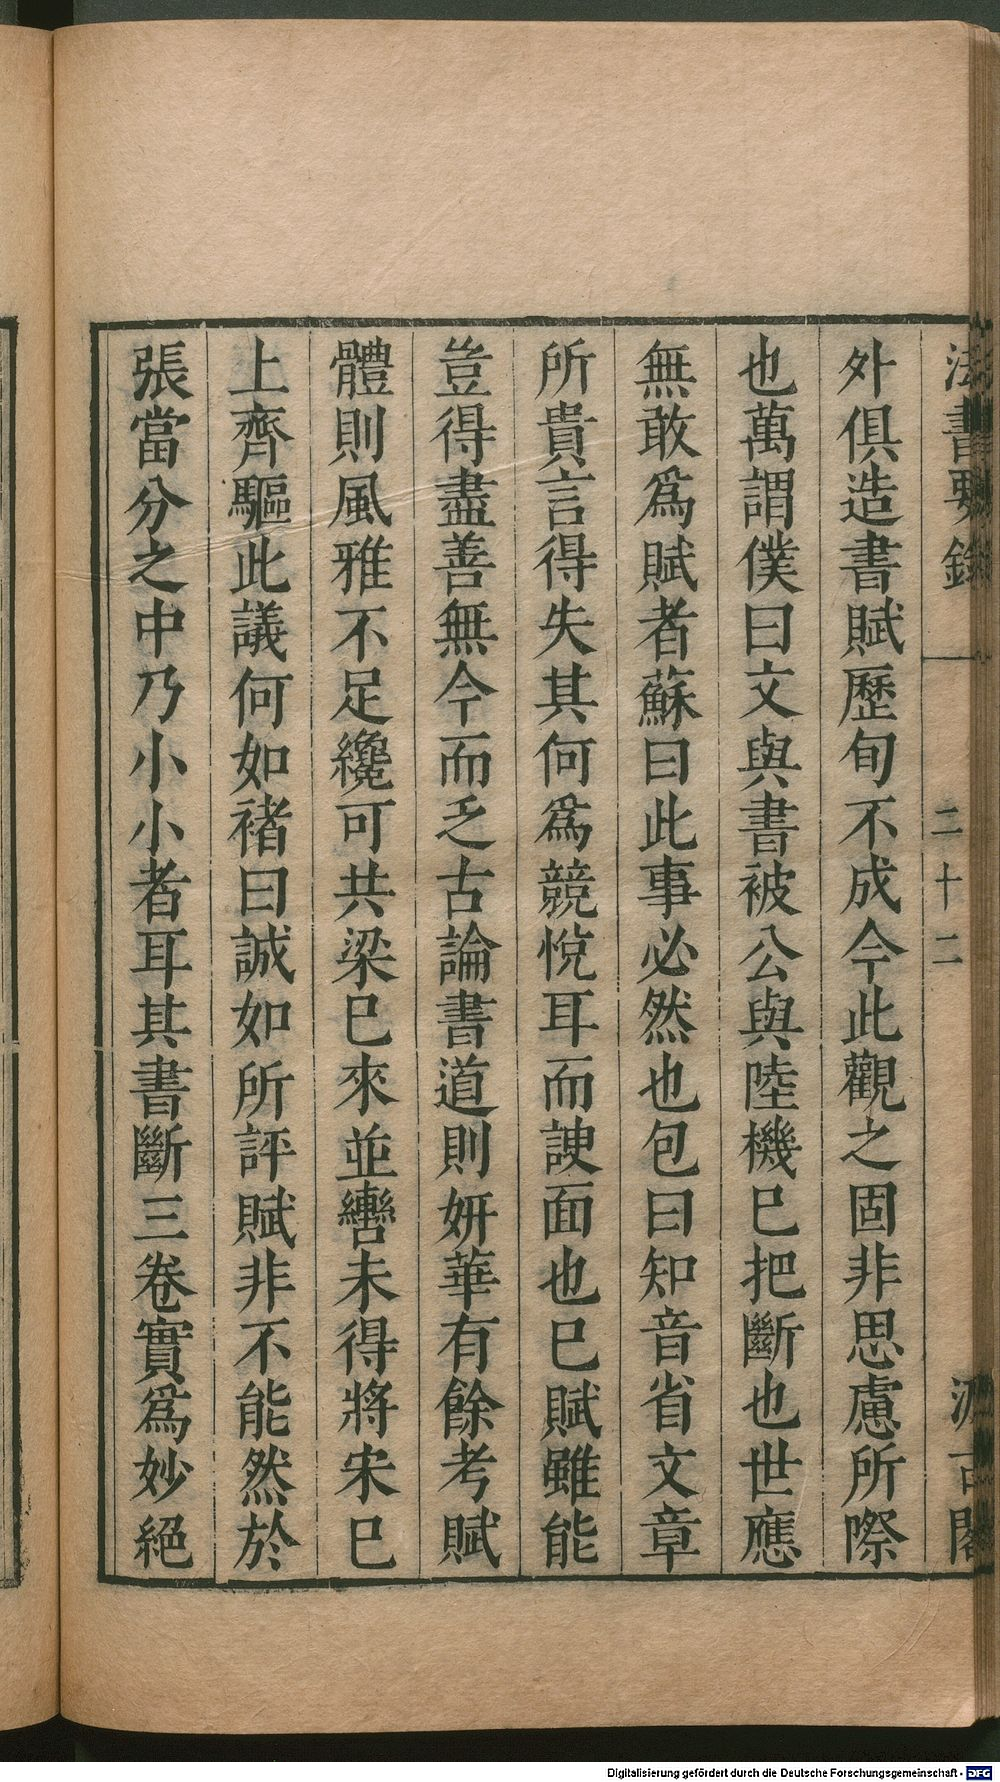 法書要錄
二十二
汲古閣
外俱造書賦歷旬不成今此觀之固非思慮所際
也萬謂僕曰文與書被公與陸機巳把斷也世應
無敢爲賦者蘇曰此事必然也包曰知音省文章
所貴言得失其何爲競悅耳而諛面也巳賦雖能
豈得盡善無今而乏古論書道則妍華有餘考賦
體則風雅不足纔可共梁巳來並轡未得將宋巳
上齊驅此議何如褚曰誠如所評賦非不能然於
張當分之中乃小小者耳其書斷三卷實爲妙絕
Digitalisierung gefördert durch die Deutsche Forschungsgemeinschaft - DFG